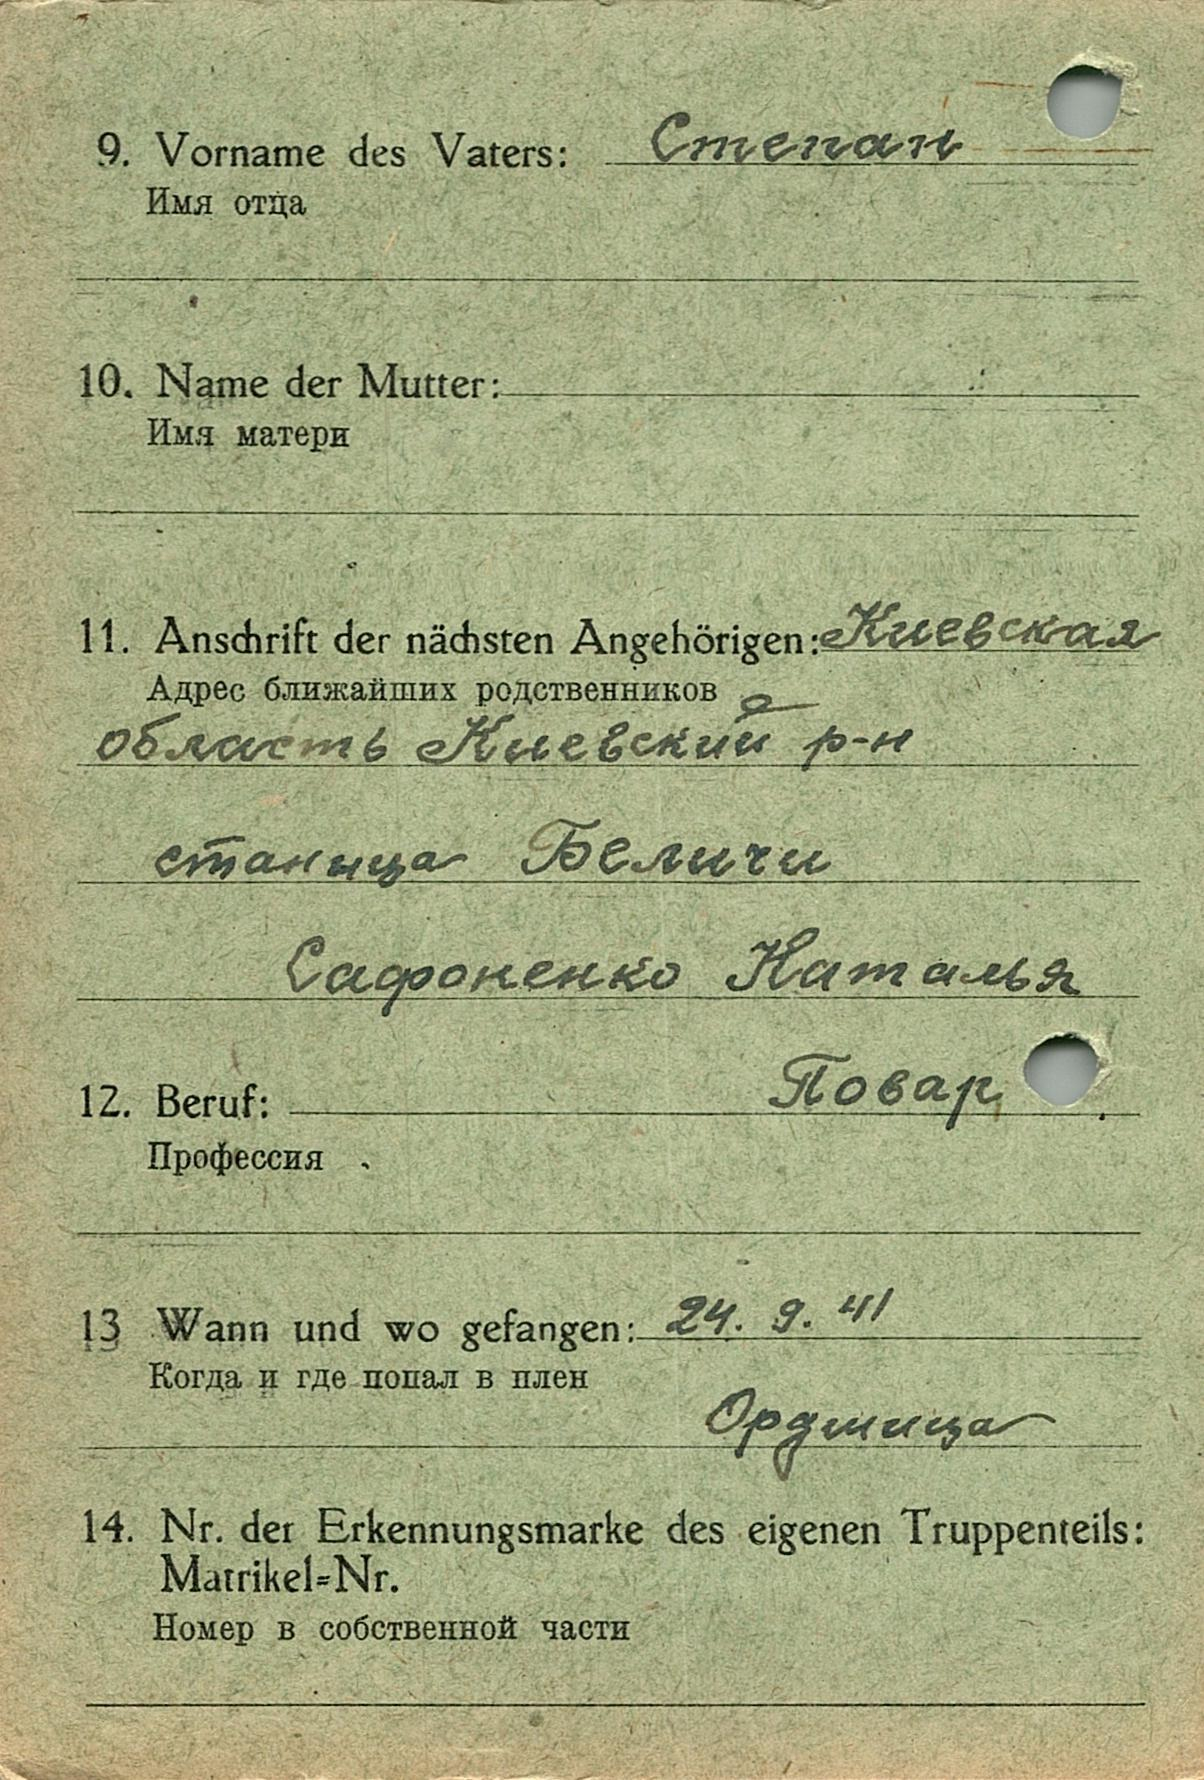 9. Vorname des Vaters: Степан
Имя отца
10. Name der Mutter:
Имя матери
11. Anschrift der nächsten Angehörigen: Киевская
Адрес ближайших родственников
область Киевский р-н
станица Беличи
Сафоненко Наталья
12. Beruf: Повар
Профессия
13 Wann und wo gefangen: 24. 9. 41
Когда и где попал в плен
Оржица
14. Nr. der Erkennungsmarke des eigenen Truppenteils:
Matrikel=Nr.
Номер в собственной части